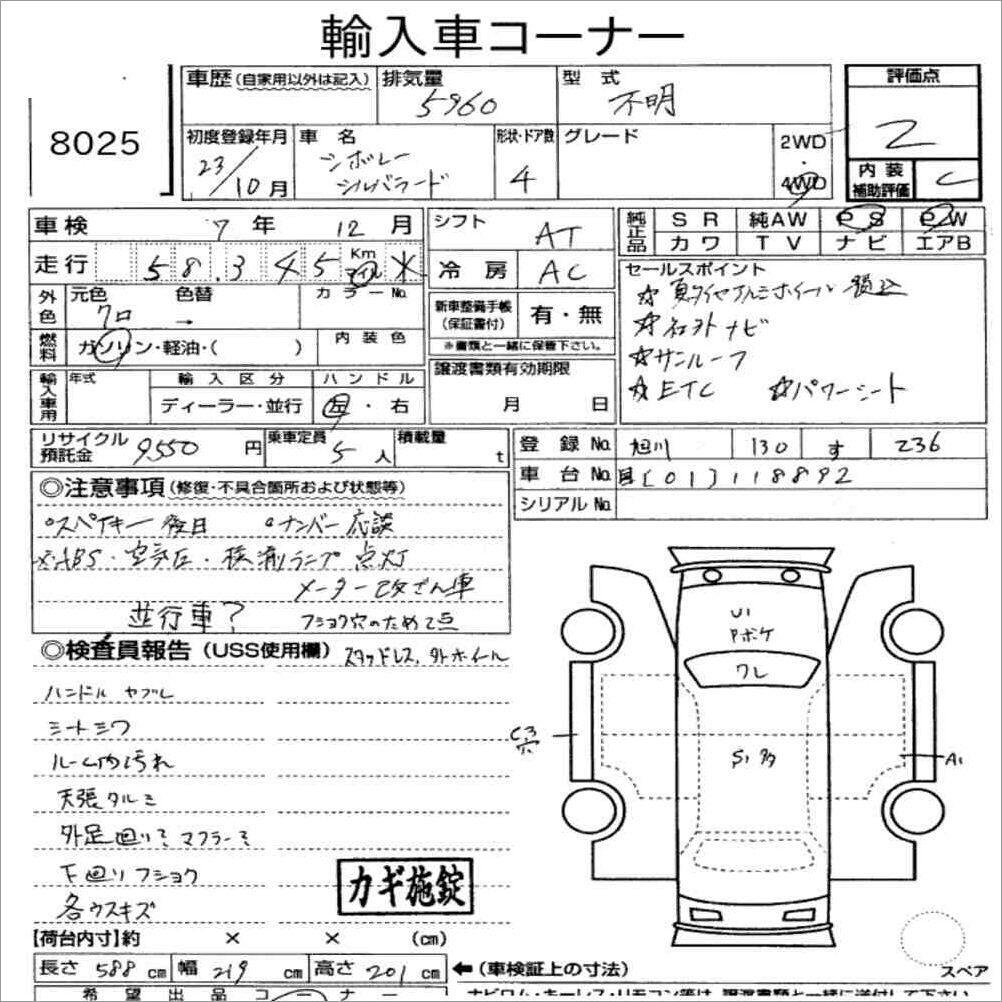 輸入車コーナー
8025
車歴(自家用以外は記入) 排気量 5960 型式 不明 評価点 2
初度登録年月 23/10月 車名 シボレー シルバラード 形状・ドア数 4 グレード 2WD・4WD 内装補助評価 C
車検 7年 12月 シフト AT 純正品 SR 純AW PS PW
走行 58.345 Km マイル ※ 冷房 AC カワ TV ナビ エアB
外色 元色 クロ 色替 → カラーNo. 新車整備手帳(保証書付) 有・無 ※書類と一緒に保管下さい。
セールスポイント
☆夏タイヤアルミホイール 積込
☆社外ナビ
☆サンルーフ
☆ETC ☆パワーシート
燃料 ガソリン・軽油・( ) 内装色
譲渡書類有効期限 月 日
輸入車用 年式 輸入区分 ディーラー・並行 ハンドル 左・右
リサイクル預託金 9550円 乗車定員 5人 積載量 t
登録No. 旭川 130 す 236
車台No. 国[01]118892
シリアルNo.
◎注意事項(修復・不具合箇所および状態等)
°スペアキー後日 °ナンバー応談
×ABS・空気圧・横滑ランプ点灯
メーター改ざん車
並行車? フショク穴のため2点
◎検査員報告(USS使用欄) スタッドレス,外ホイール
ハンドル ヤブレ
シートシワ
ルーム内汚れ
天張タルミ
外足廻りミ マフラーミ
下廻りフショク
各ウスキズ
カギ施錠
U1
Pボケ
ワレ
C3
穴
S1多
A1
【荷台内寸】約 × × (cm)
長さ 588cm 幅 219cm 高さ 201cm ←(車検証上の寸法) スペア
希望出品コーナー
ナビロム・キーレス・リモコン等は、譲渡書類と一緒に送付して下さい